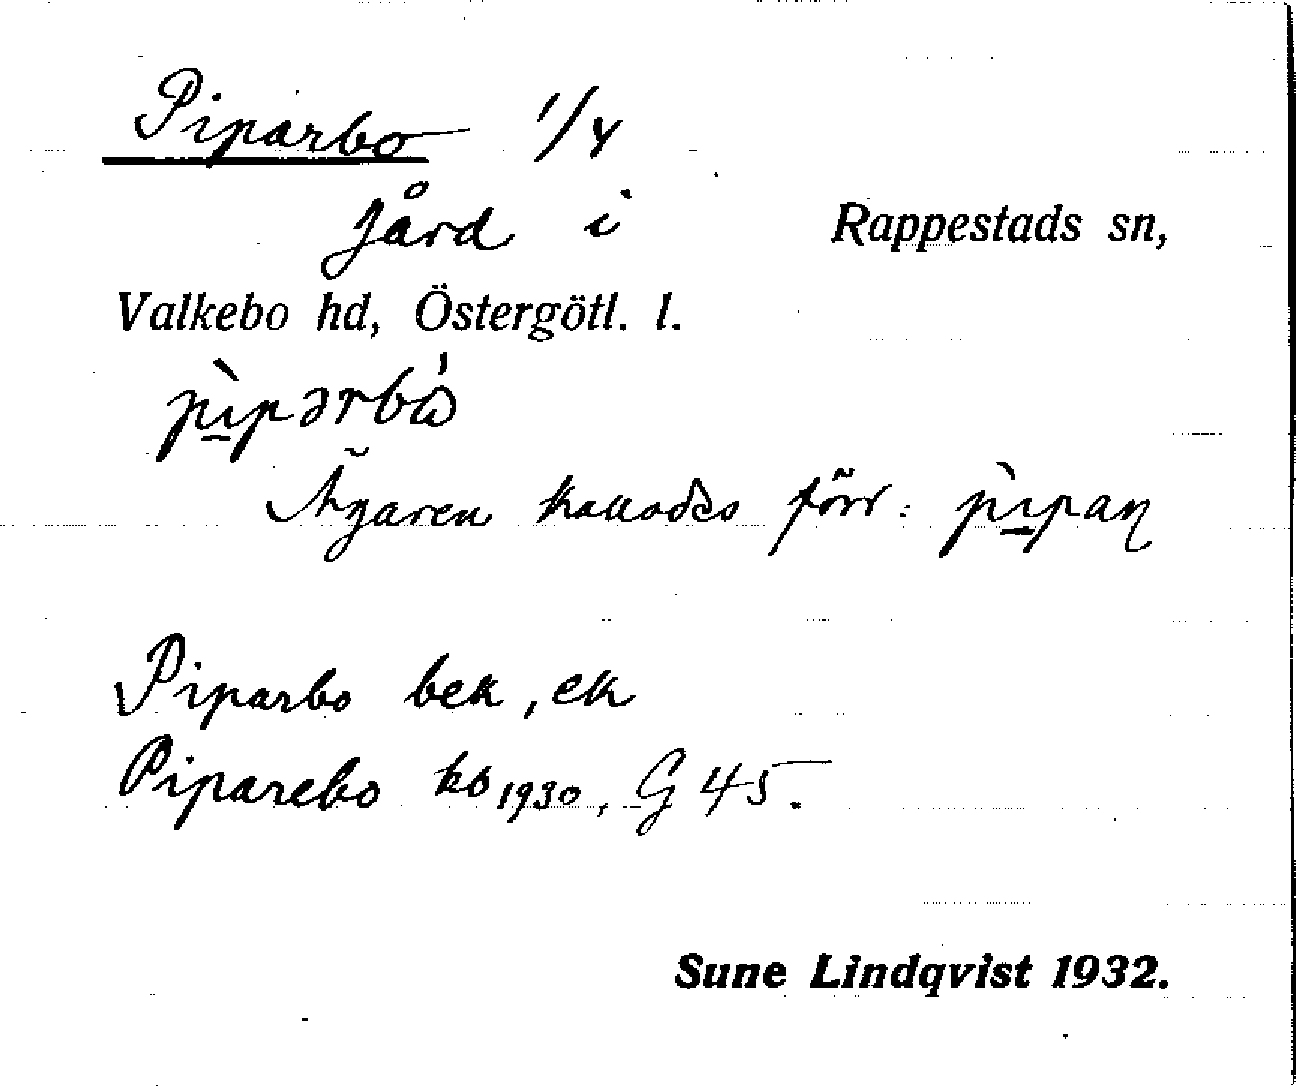 Piparbo 1/4
gård i Rappestads sn,
Valkebo hd, Östergötl. l.
pìpərbω̍
Ägaren kallades förr: pìpaɳ
Piparbo bek, ek
Piparebo kb 1930, G 45.
Sune Lindqvist 1932.